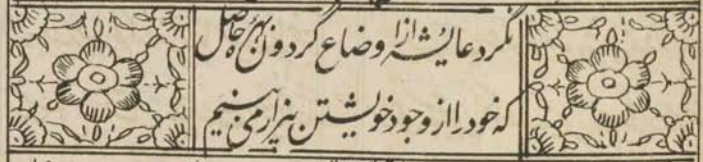 نگردد عایشه از اوضاع گردون بهره حاصل
که خود را از وجود خویشتن بیزار می بینم